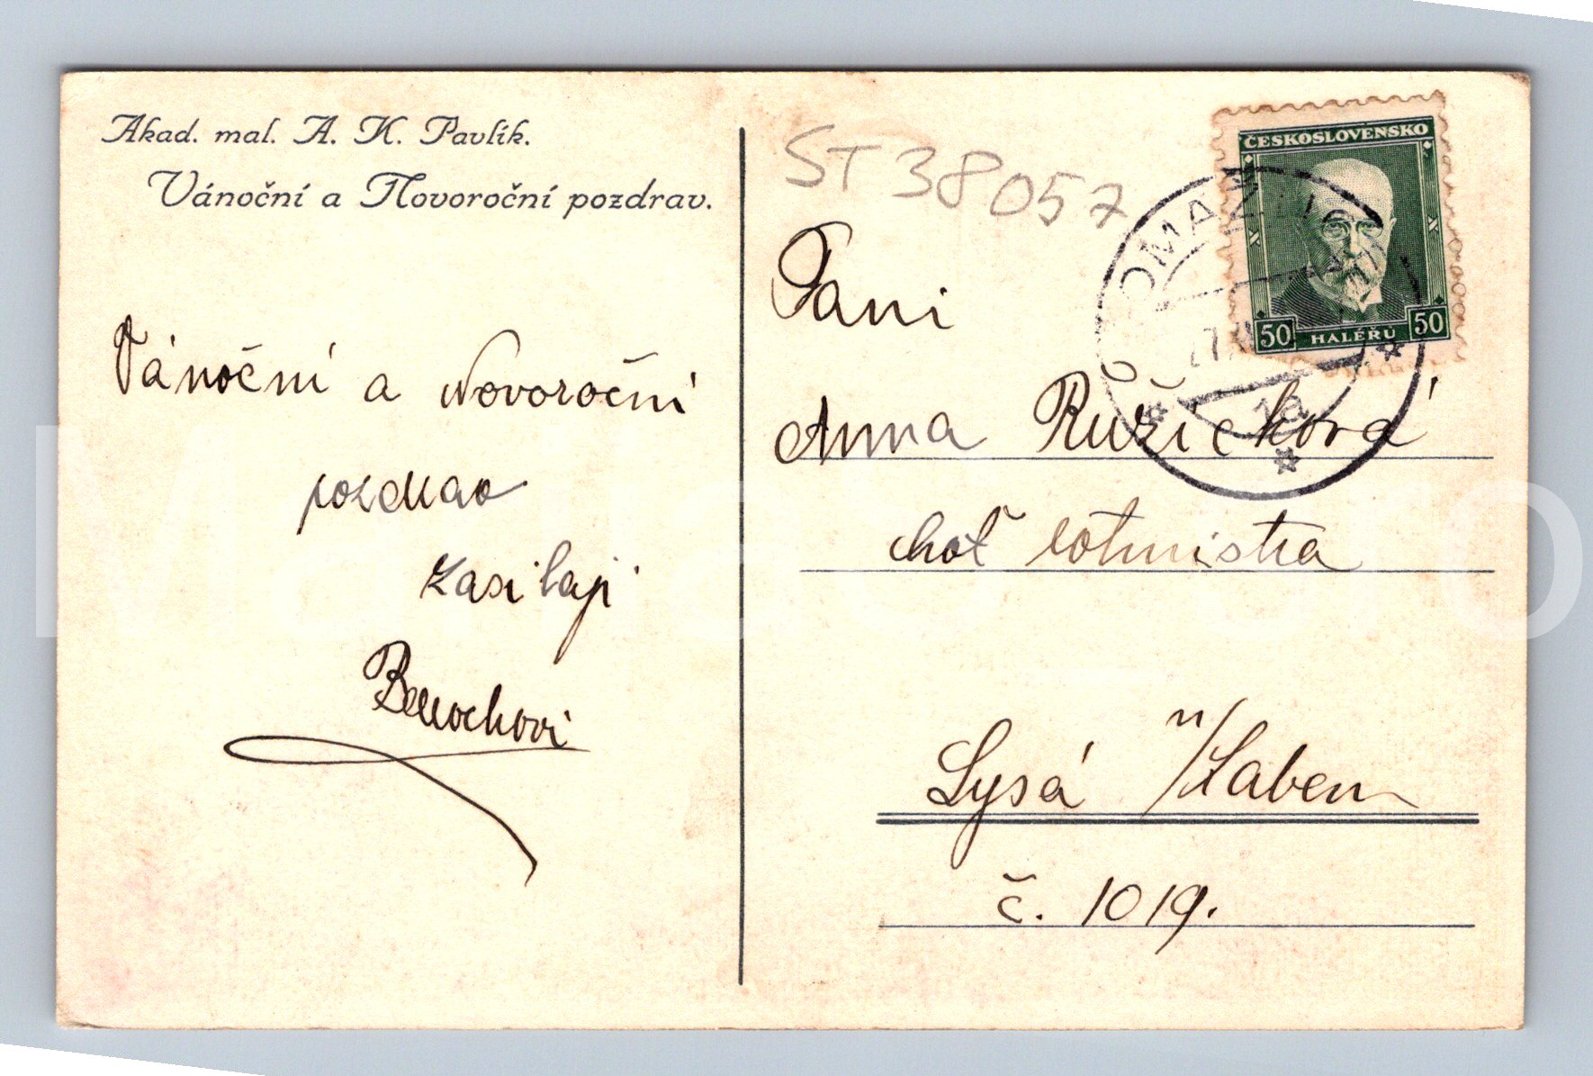 Akad. mal. A. K. Pavlík.
Vánoční a Novoroční pozdrav.
Vánoční a Novoroční
pozdrav
zasílají
ST 38057
ČESKOSLOVENSKO
50 HALÉŘŮ 50
1a
Paní
Anna Růžičková
choť rotmistra
Lysá n/Labem
č. 1019.